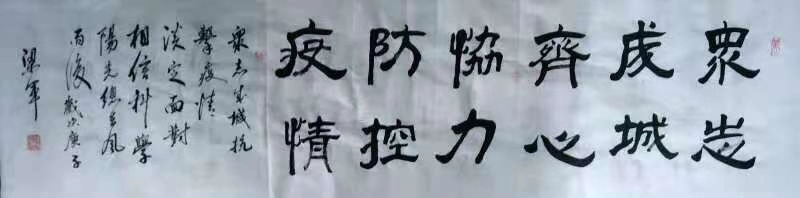 眾志
成城
齊心
恊力
防控
疫情
眾志成城抗
擊疫情
淡定面對
相信科學
陽光總在風
雨後 歲次庚子
梁軍